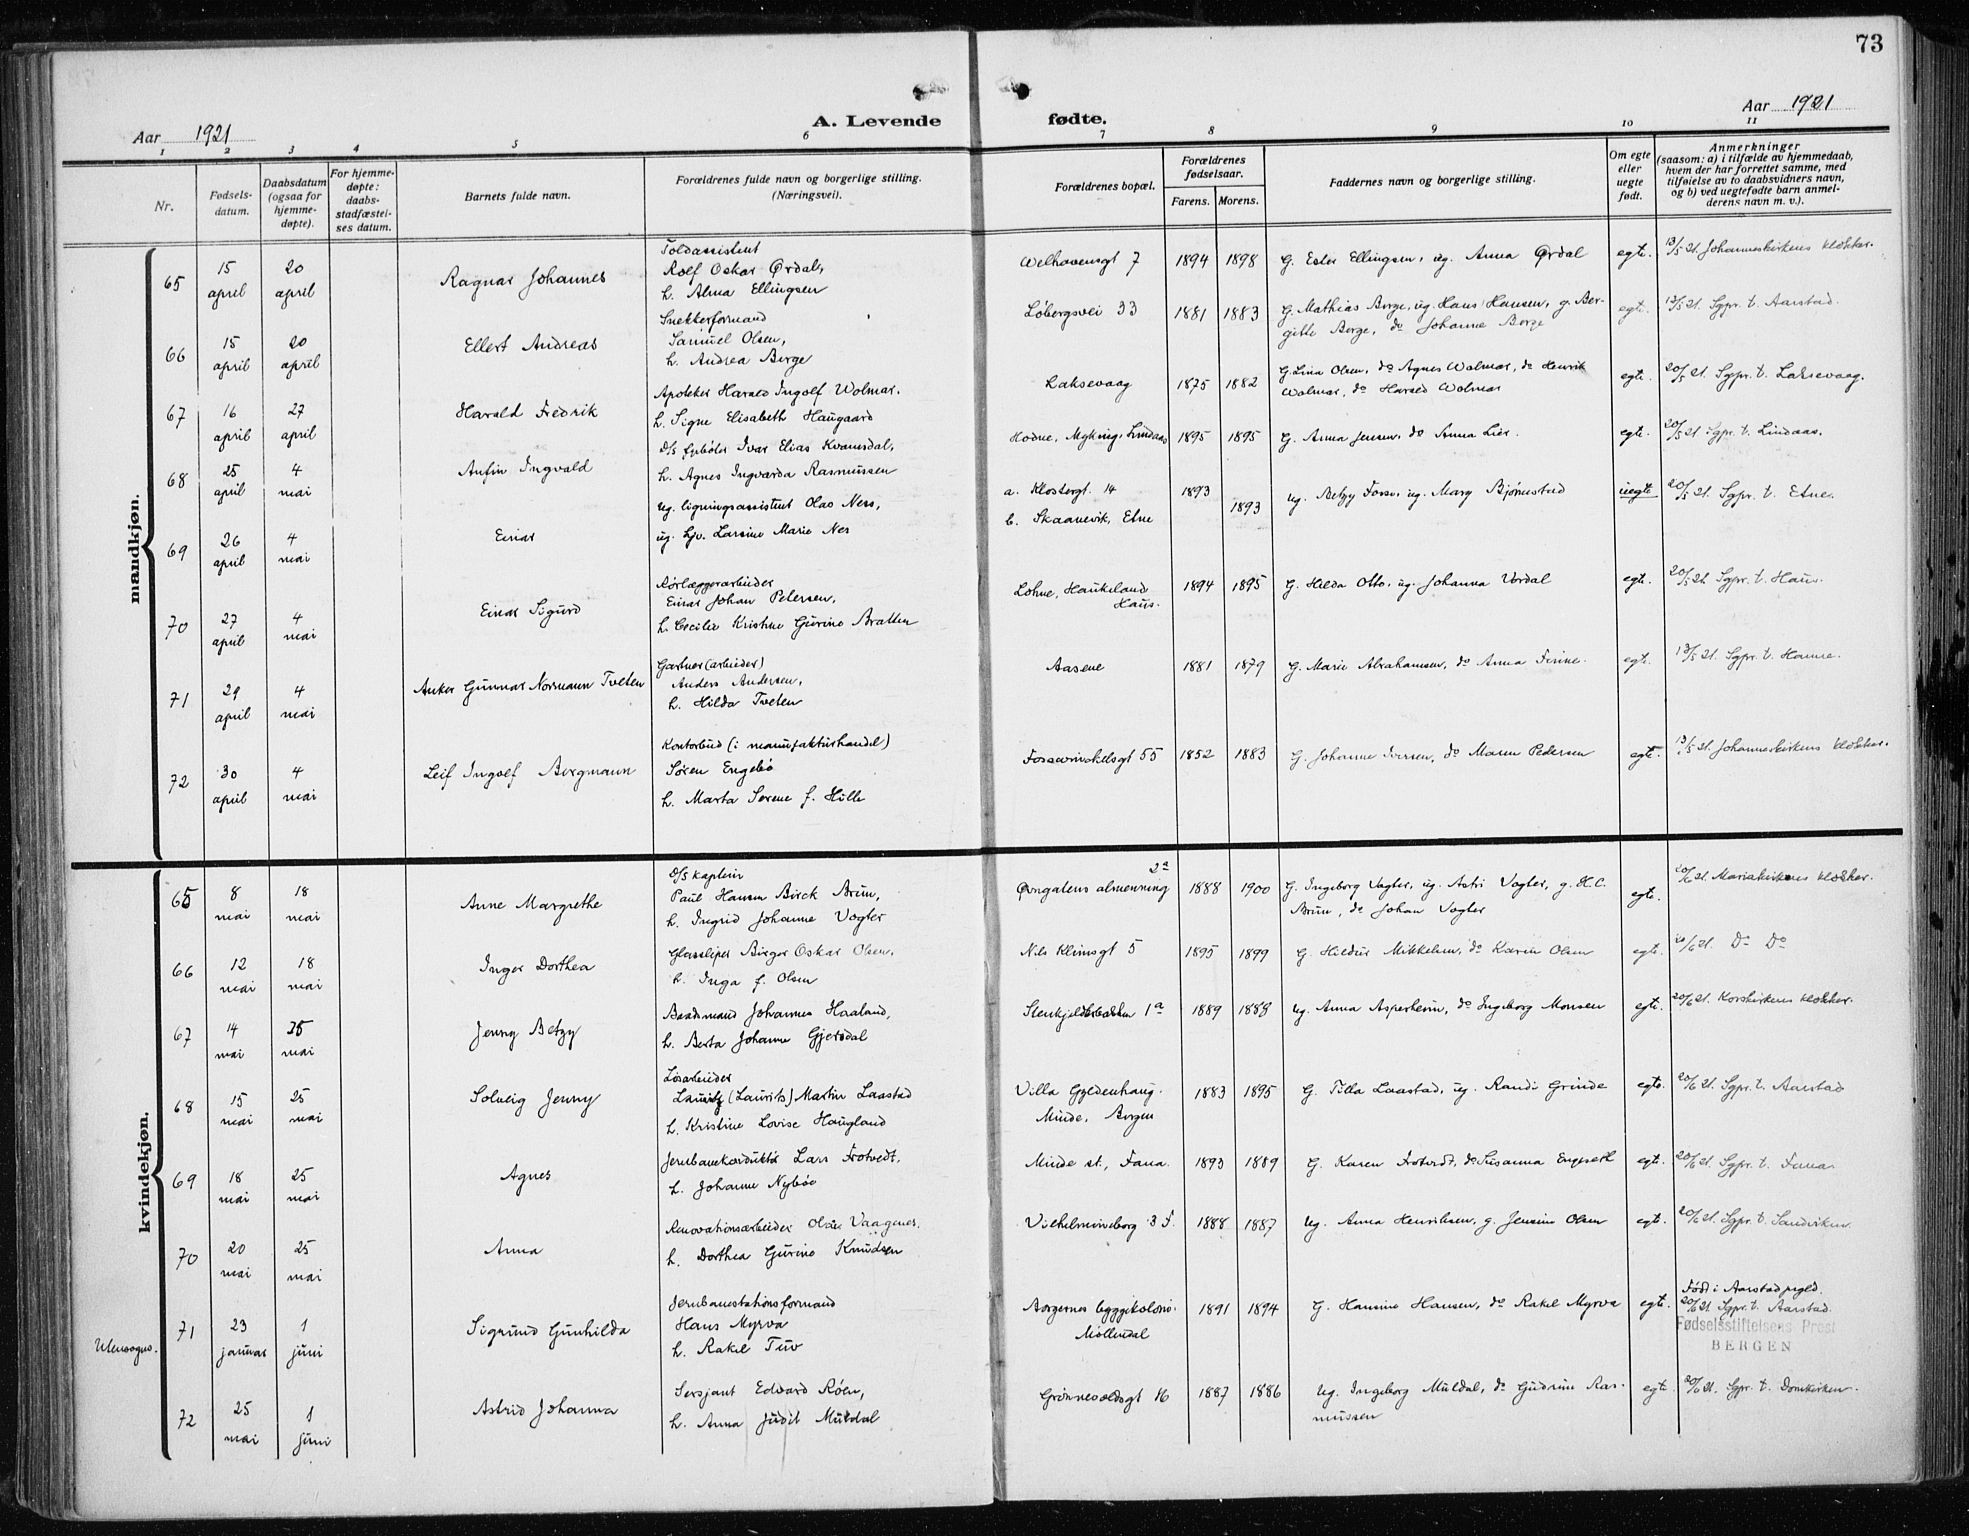 73
Aar 1921
A. Levende
fødte.
Aar 1921
1 2 3 4 5 6 7 8 9 10 11
Nr.
Fødsels-
datum.
Daabsdatum
(ogsaa for
hjemme-
døpte).
For hjemme-
døpte:
daabs-
stadfæstel-
ses datum.
Barnets fulde navn.
Forældrenes fulde navn og borgerlige stilling.
(Næringsvei).
Forældrenes bopæl.
Forældrenes
fødselsaar.
Farens. Morens.
Faddernes navn og borgerlige stilling.
Om egte
eller
uegte
født.
Anmerkninger
(saasom: a) i tilfælde av hjemmedaab,
hvem der har forrettet samme, med
tilføielse av to daabsvidners navn,
og b) ved uegtefødte barn anmel-
derens navn m. v.).
mandkjøn.
65
15 april
20 april
Ragnar Johannes
Toldassistent
Rolf Oskar Ørdal,
h. Alma Ellingsen
Welhavensgt 7
1894 1898
G. Ester Ellingsen, ug. Anna Ørdal
egte.
13/5 21. Johanneskirkens klokker.
66
15 april
20 april
Ellert Andreas
Snekkerformand
Samuel Olsen,
h. Andrea Berge
Løbergsvei 33
1881 1883
G. Mathias Berge, ug. Hans Hansen, g. Ber-
gitte Berge, do Johanne Berge
egte.
13/5 21. Sgpr. t. Aarstad.
67
16 april
27 april
Harald Fredrik
Apoteker Harald Ingolf Wolmar.
h. Signe Elisabeth Haugaard
Laksevaag
1875 1882
G. Lina Olsen, do Agnes Wolmar, do Henrik
Wolmar, do Harald Wolmar
egte.
20/5 21. Sgpr. t. Laksevaag.
68
25 april
4 mai
Anfin Ingvald
D/S fyrbøter Ivar Elias Kvamsdal,
h. Agnes Ingvarda Rasmussen
Hodne, Myking, Lindaas
1895 1895
G. Anna Jensen, do Anna Lier.
egte.
20/5 21. Sgpr. t. Lindaas.
69
26 april
4 mai
Einar
Ug. ligningsassistent Olao Ness,
ug. Hjv. Larsine Marie Nes
a. Klostergt. 14
b. Skaanevik, Etne
1893
1893
Ug. Betzy Fosse, ug. Mary Bjørnestad
uegte
20/5 21. Sgpr. t. Etne.
70
27 april
4 mai
Einar Sigurd
Rørlæggerarbeider
Einar Johan Petersen,
h. Cecilie Kristine Gurine Bratten
Lohne, Haukeland
Haus.
1894 1895
G. Hilda Otto, ug. Johanna Vordal
egte.
20/5 21. Sgpr. t. Haus.
71
29 april
4 mai
Anker Gunnar Normann Tveten
Gartner (arbeider)
Anders Andersen,
h. Hilda Tveten
Aasene
1881 1879
G. Marie Abrahamsen, do Anna Ferine.
egte.
13/5 21. Sgpr. t. Hamre.
72
30 april
4 mai
Leif Ingolf Bergmann
Kontorbud (i manufakturhandel)
Søren Engebø
h. Marta Serene f. Hille
Fossevinckelsgt 55
1852 1883
G. Johanne Iversen, do Maren Pedersen
egte.
13/5 21. Johanneskirkens klokker.
kvindekjøn.
65
8 mai
18 mai
Anne Margrethe
D/S kaptein
Paul Hansen Birck Brun,
h. Ingrid Johanne Vogter
Øvregatens almenning 2a
1888 1900
G. Ingeborg Vogter, ug. Astri Vogter, g. H.C.
Brun, do Johan Vogter
egte.
20/6 21. Mariakirkens klokker.
66
12 mai
18 mai
Inger Dorthea
Glassliper Birger Oskar Olsen,
h. Inga f. Olsen
Nils Klimsgt 5
1895 1899
G. Hildur Mikkelsen, do Karin Olsen
egte.
20/6 21. Do Do
67
14 mai
25 mai
Jenny Betzy
Baadsmand Johannes Haaland,
h. Berta Johanne Gjersdal
Stenkjelderbakken 1a
1889 1889
Ug. Anna Asperheim, do Ingeborg Monsen
egte.
20/6 21. Korskirkens klokker.
68
15 mai
25 mai
Solveig Jenny
Løsarbeider
Lauritz (Laurits) Martin Laastad
h. Kristine Lovise Haugland
Villa Gyldenhaug.
Minde, Bergen
1883 1895
G. Tilla Laastad, ug. Randi Grinde
egte.
20/6 21. Sgpr. t. Aarstad
69
18 mai
25 mai
Agnes
Jernbanekonduktør Lars Trotvedt,
h. Johanne Nybøe
Minde st., Fana.
1893 1889
G. Karen Trotvedt, do Susanna Engeseth
egte.
20/6 21. Sgpr. t. Fana
70
20 mai
25 mai
Anna
Renovationsarbeider Olav Vaagenes.
h. Dorthea Gurine Knudsen
Vilhelmineborg 3 F.
1888 1887
Ug. Anna Henriksen, g. Jensine Olsen
egte.
20/6 21. Sgpr. t. Sandviken.
Utensogns.
71
23 januar
1 juni
Sigrund Gunhilda
Jernbanestationsformand
Hans Myrva
h. Rakel Tuv
byggekoloni.
Møllendal
1891 1894
G. Hansine Hansen, do Rakel Myrva
egte.
Født i Aarstad prgld.
20/6 21. Sgpr. t. Aarstad.
Fødselsstiftelsens Prest
BERGEN
72
25 mai
1 juni
Astrid Johanna
Sersjant Edvard Røen,
h. Anna Judit Muldal
Grønnevoldsgt 16
1887 1886
Ug. Ingeborg Muldal, do Gudrun Ras-
mussen
egte.
20/6 21. Sgpr. t. Domkirken.